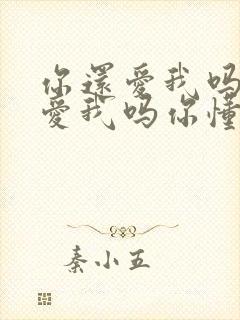 你還愛我吗
愛我吗你懂
秦小五